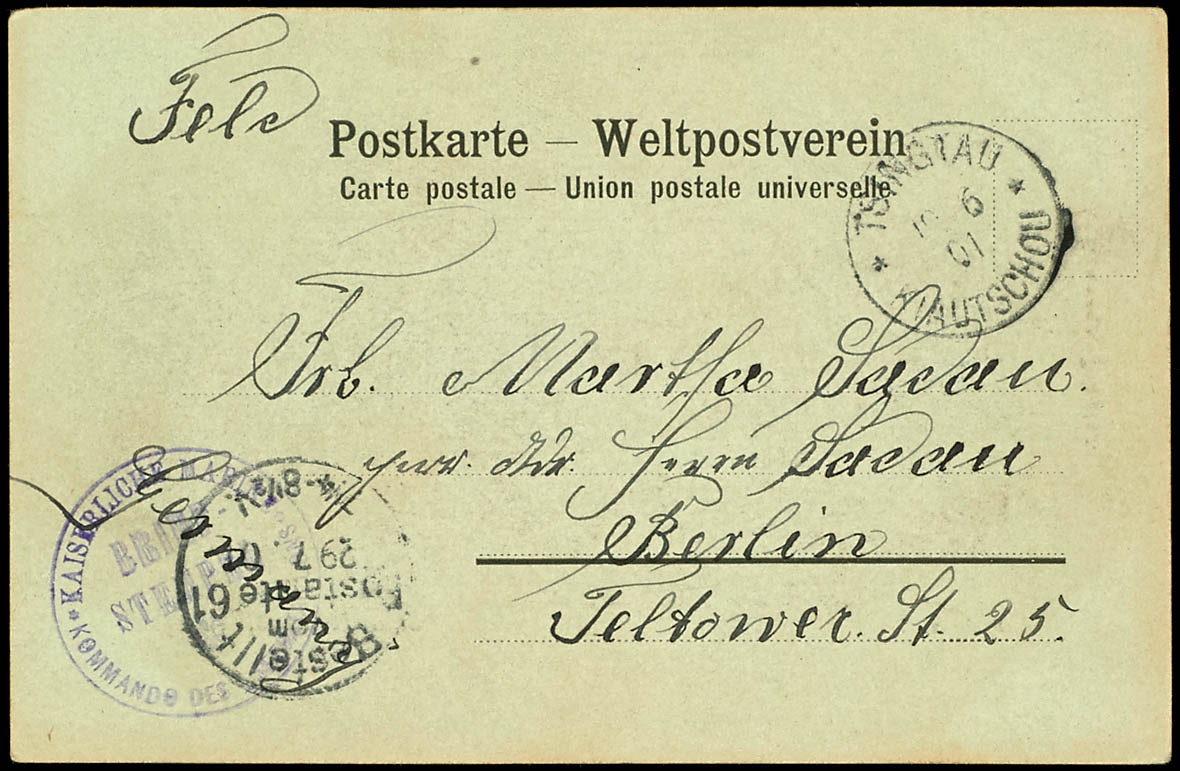 Feld
Postkarte — Weltpostverein
Carte postale — Union postale universelle
* TSINGTAU *
6
01
KIAUTSCHOU
Frl. Martha Sadau.
Herrn Sadau
Berlin
Teltower. St. 25.
Germany
* KAISERLICHE MARINE
BRIEF-
STEMPEL
* KOMMANDO DES
Bestellt
vom
Postamte 61
29 7. 01
8¼-